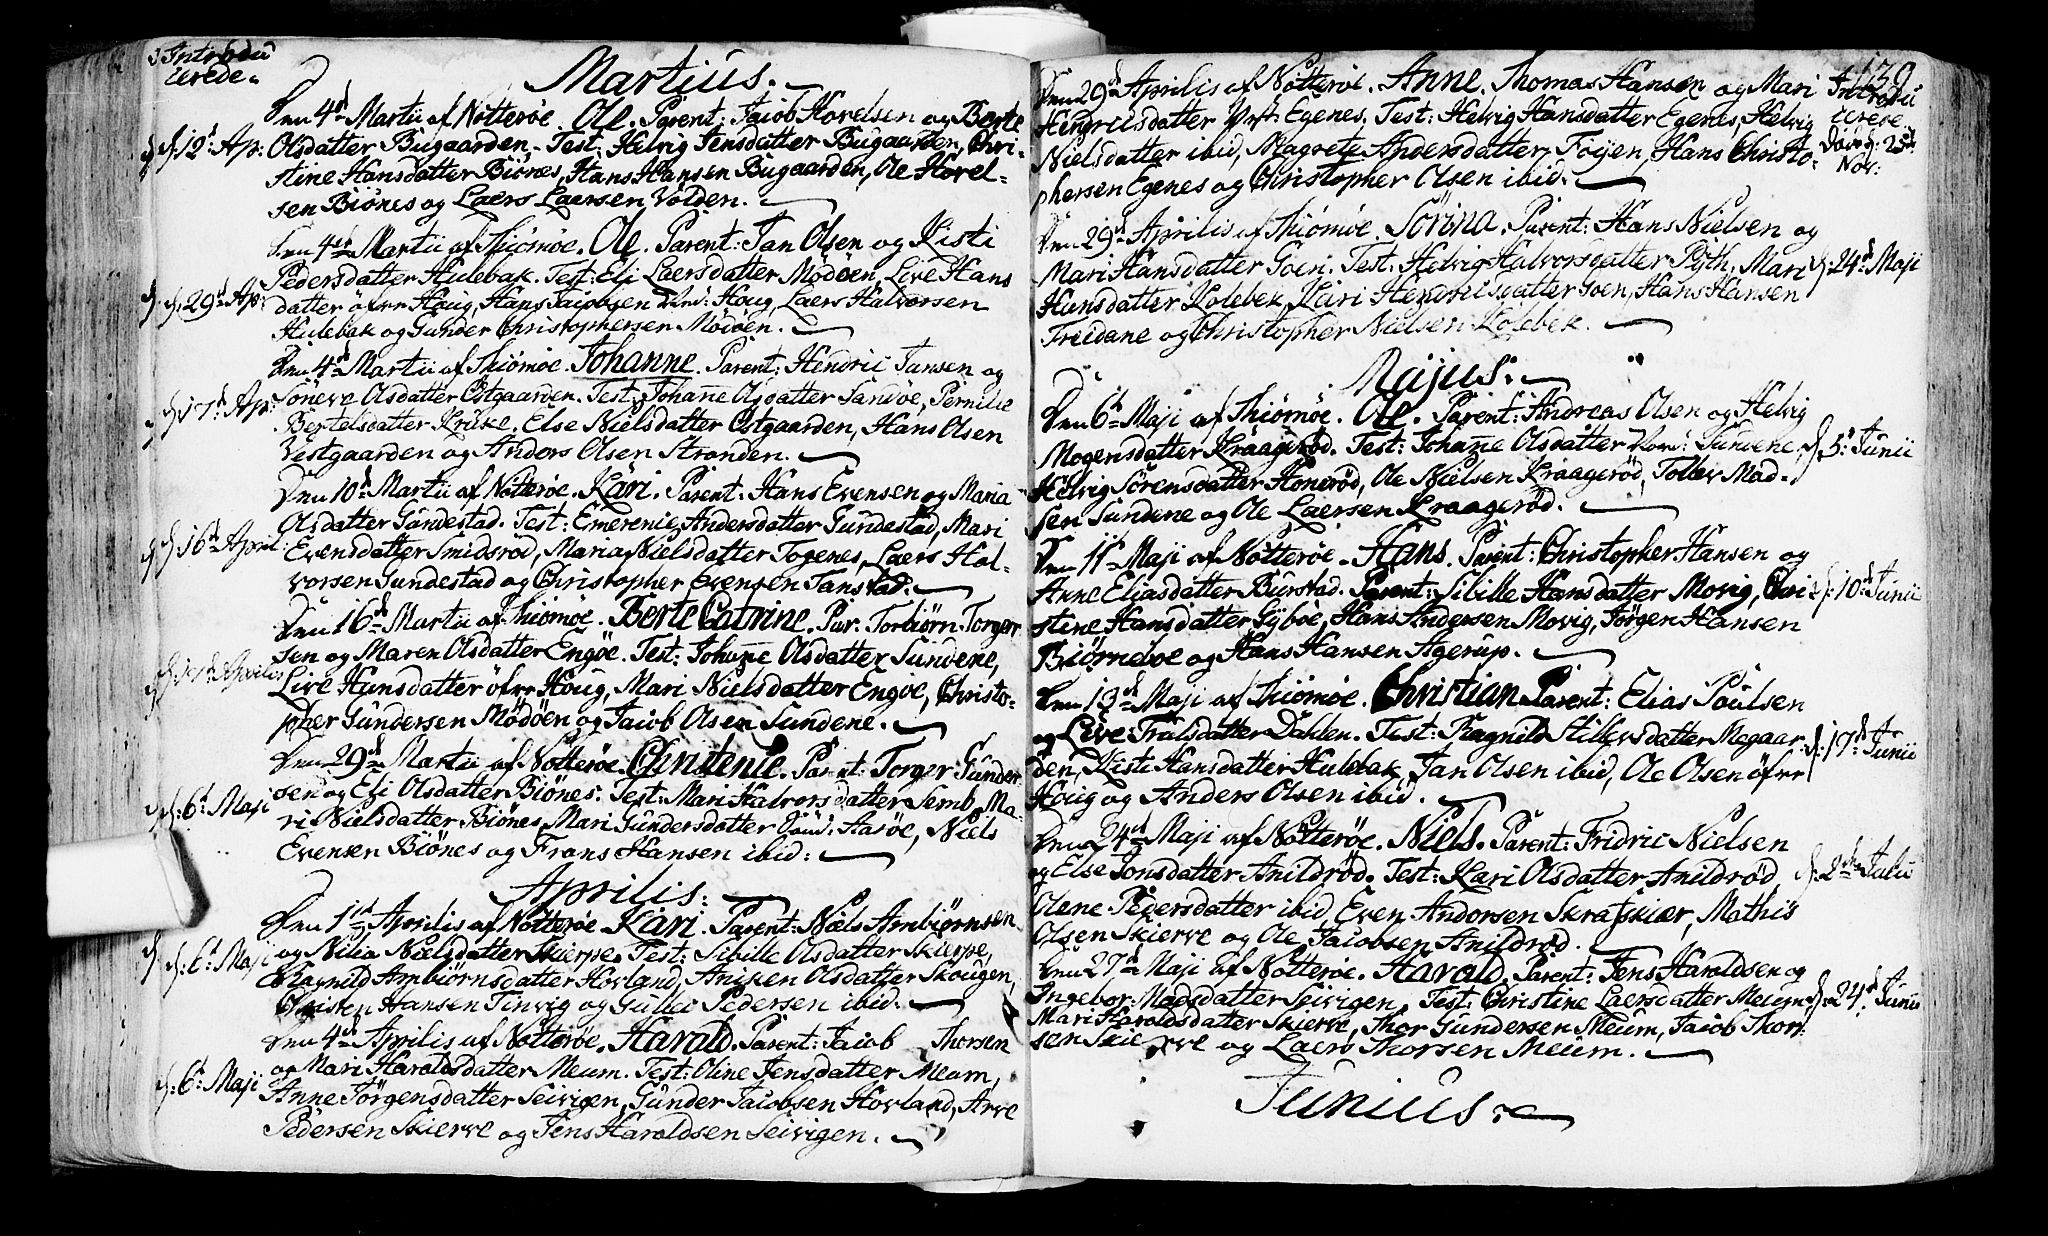 Introdu
cerede
Martius.
Den 4de Martii af Nötteröe. Ole. Parent: Jacob Hovelsen og Berte
d. 12t Ap: Olsdatter Bugaarden. Test: Helvig Jensdatter Bugaarden, Chri-
stine Hansdatter Biönes, Hans Hansen Bugaarden, Ole Hovel-
sen Biönes og Laers Laersen Volden.
Den 4de Martii af Thiömöe. Ole. Parent: Jan Olsen og Kisti
Pedersdatter Hulebak. Test: Eli Laersdatter Mödöen, Live Hans
d. 29d Ap: datter öfre Houg, Hans Jacobsen Houg, Laers Halvorsen
Hulebak og Gunder Christophersen Mödöen.
Den 4de Martii af Thiömöe. Johanne. Parent: Hendric Jansen og
d. 17d Ap: Söneve Olsdatter Östgaarden. Test: Johane Olsdatter Sandöe, Pernille
Bertelsdatter Kruke, Else Nielsdatter Östgaarden, Hans Olsen
Vestgaarden og Anders Olsen Stranden.
Den 10d Martii af Nötteröe. Kari. Parent: Hans Evensen og Maria
Olsdatter Gundestad. Test: Emerenie Andersdatter Gundestad, Mari
d. 16d April: Evensdatter Smidsröd, Maria Nielsdatter Togenes, Laers Hal-
vorsen Gundestad og Christopher Evensen Tanstad.
Den 16d Martii af Thiömöe. Berte Catrine. Par. Torbiörn Torger
sen og Maren Olsdatter Engöe. Test: Johane Olsdatter Sundene,
d. 17d Aprilis Live Hansdatter öfre Houg, Mari Nielsdatter Engöe, Christo-
pher Gundersen Mödöen og Jacob Olsen Sundene.
Den 29d Martii af Nötteröe. Christenie. Parent: Torger Gunder-
sen og Eli Olsdatter Biönes. Test: Mari Halvorsdatter Semb, Ma-
d. 6t Maji ri Nielsdatter Biönes, Mari Gundersdatter Aasöe, Niels
Evensen Biönes og Frans Hansen ibid:
Aprilis:
Den 1st Aprilis af Nötteröe Kari. Parent: Niels Ambiörnsen
d. 6t Maji og Nilia Nielsdatter Skierpe. Test: Sibille Olsdatter Skierpe,
Ragnild Ambiörnsdatter Hovland, Aniken Olsdatter Skougen,
Christen Hansen Tinvig og Gullei Pedersen ibid.
Den 4de Aprilis af Nötteröe. Harald. Parent: Jacob Thorsen
d. 6t Maji og Mari Haroldsdatter Meum. Test: Oline Jensdatter Meum,
Anne Jörgensdatter Seivigen, Gunder Jacobsen Hovland, Arve
Pedersen Skierve og Jens Haroldsen Seivigen.
139
Introdu
cerede
Den 29d Aprilis af Nötteröe. Anne. Thomas Hansen og Mari
Hendricsdatter Egenes. Test: Helvig Hansdatter Egenes, Helvig
Nielsdatter ibid, Magrete Andersdatter Föyen, Hans Christo- d. 25d
Nov:
phersen Egenes og Christopher Olsen ibid.
Den 29d Aprilis af Thiömöe. Sörina. Parent: Hans Nielsen og
Mari Hansdatter Goen. Test. Helvig Halvorsdatter Pyth, Mari d. 24d Maji
Hansdatter Kolebek, Kari Hendricsdatter Goen, Hans Hansen
Treidane og Christopher Nielsen Kolebek.
Majus.
Den 6t Maji af Thiömöe. Ole. Parent: Andreas Olsen og Helvig
Mogensdatter Kraageröd. Test: Johane Olsdatter Sundene d. 5t Junii
Helvig Sörensdatter Honeröd, Ole Nielsen Kraageröd, Tollev Mad-
sen Sundene og Ole Laersen Kraageröd.
Den 11t Maji af Nötteröe. Hans. Parent: Christopher Hansen og
Anne Eliasdatter Burstad. Parent: Sibille Hansdatter Movig, Chri d. 10d Junii
stine Hansdatter Gyböe, Hans Andersen Movig, Jörgen Hansen
Biörneboe og Hans Hansen Agerup.
Den 13d Maji af Thiömöe. Christian Parent: Elias Poulsen
og Live Trulsdatter Dahlen. Test: Ragnild Stillevsdatter Megaar- d. 17d Junii
den, Kisti Hansdatter Hulebak, Jan Olsen ibid, Ole Olsen öfre
Houg og Anders Olsen ibid.
Den 24d Maji af Nötteröe. Niels. Parent: Fridric Nielsen
og Else Jonsdatter Anildröd. Test: Kari Olsdatter Anildröd, d. 2den Julii
Olene Pedersdatter ibid, Even Andersen Skrafskiær, Mathis
Olsen Skierve og Ole Jacobsen Anildröd.
Den 27d Maji af Nötteröe. Harald. Parent: Jens Haroldsen og
Ingebor: Madsdatter Seivigen. Test: Christine Laersdatter Meum d. 24d Junii
Mari Haroldsdatter Skierve, Thor Gundersen Meum, Jacob Thor-
sen Skierve og Laers Thorsen Meum.
Junius.